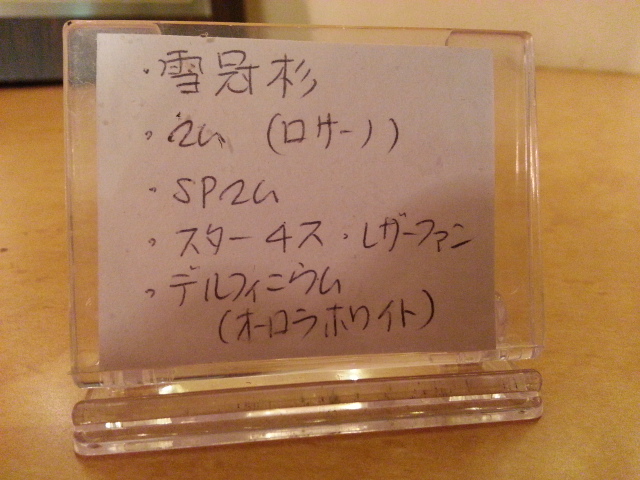 ・雪冠杉
・バラ (ロサーノ)
・SPバラ
・スターチス・レザーファン
・デルフィニウム
(オーロラホワイト)